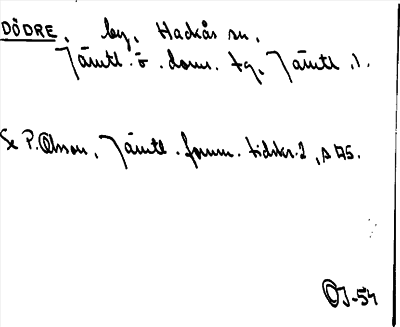 DÖDRE. by. Hackås sn.
Jämtl. ö. dom. tg. Jämtl. l.
Se P. Olsson, Jämtl. fornm. tidskr. 2, s 175.
OJ-54